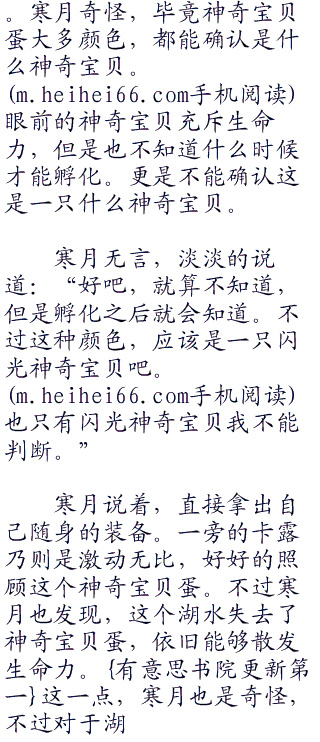 。寒月奇怪，毕竟神奇宝贝
蛋大多颜色，都能确认是什
么神奇宝贝。
(m.heihei66.com手机阅读)
眼前的神奇宝贝充斥生命
力，但是也不知道什么时候
才能孵化。更是不能确认这
是一只什么神奇宝贝。
寒月无言，淡淡的说
道：“好吧，就算不知道，
但是孵化之后就会知道。不
过这种颜色，应该是一只闪
光神奇宝贝吧。
(m.heihei66.com手机阅读)
也只有闪光神奇宝贝我不能
判断。”
寒月说着，直接拿出自
己随身的装备。一旁的卡露
乃则是激动无比，好好的照
顾这个神奇宝贝蛋。不过寒
月也发现，这个湖水失去了
神奇宝贝蛋，依旧能够散发
生命力。{有意思书院更新第
一}这一点，寒月也是奇怪，
不过对于湖